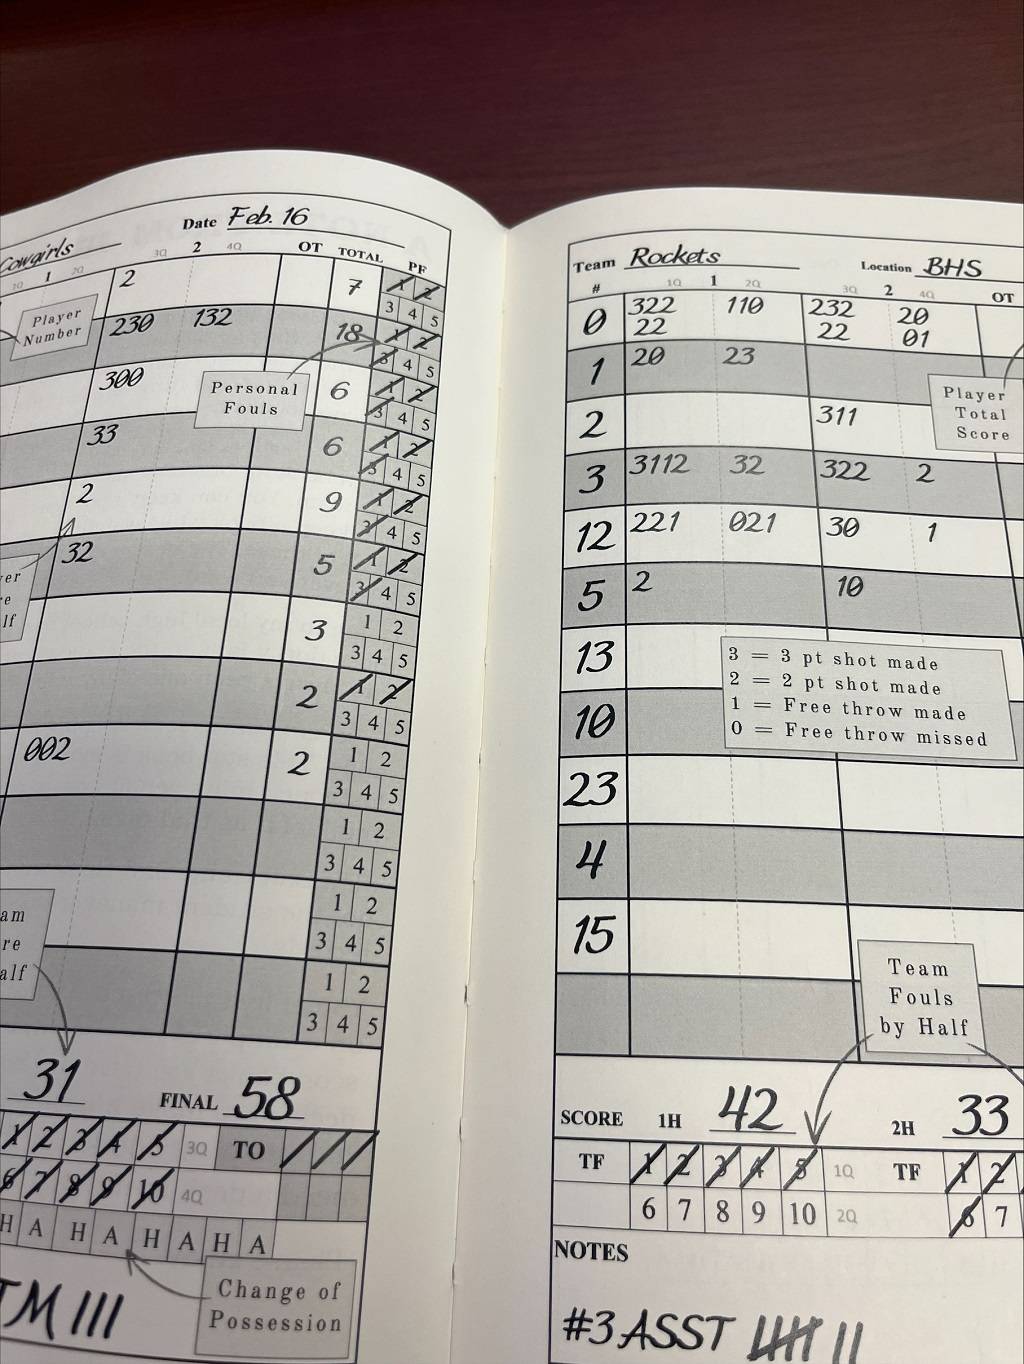 Cowgirls Date Feb. 16
1Q 1 2Q 3Q 2 4Q OT TOTAL PF
Player
Number
2 7 1 2
3 4 5
230 132 18 1 2
3 4 5
Personal
Fouls
300 6 1 2
3 4 5
33 6 1 2
3 4 5
2 9 1 2
3 4 5
32 5 1 2
3 4 5
3 1 2
3 4 5
2 1 2
3 4 5
002 2 1 2
3 4 5
1 2
3 4 5
1 2
3 4 5
1 2
3 4 5
31 FINAL 58
1 2 3 4 5 3Q TO
6 7 8 9 10 4Q
H A H A H A H A
Change of
Possession
TM III
Team Rockets Location BHS
# 1Q 1 2Q 3Q 2 4Q OT
0 322 110 232 20
22 22 01
1 20 23
Player
Total
Score
2 311
3 3112 32 322 2
12 221 021 30 1
5 2 10
13
3 = 3 pt shot made
2 = 2 pt shot made
1 = Free throw made
0 = Free throw missed
10
23
4
15
Team
Fouls
by Half
SCORE 1H 42 2H 33
TF 1 2 3 4 5 1Q TF 1 2
6 7 8 9 10 2Q 6 7
NOTES
#3 ASST IIII II